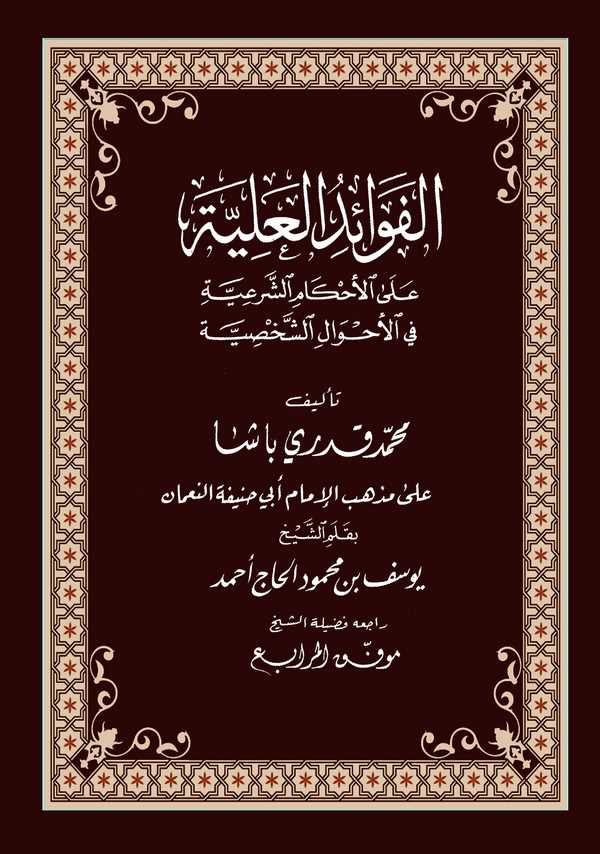 الفَوَائِدُ العَلِيَّة
عَلَى ٱلأَحْكَامِ ٱلشَّرعِيَّةِ
فِي ٱلأَحْوَالِ ٱلشَّخْصِيَّة
تأليف
محمّد قدري باشا
على مذهب الإمام أبي حنيفة النعمان
بِقَلَمِ ٱلشَّيْخ
يوسف بن محمود الحاج أحمد
راجعه فضيلة الشيخ
موفّق المرابع